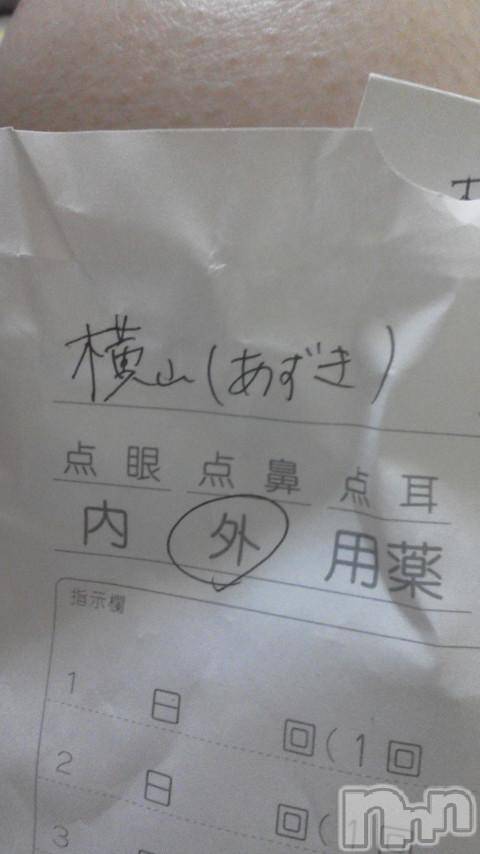 横山(あずき)
点眼 点鼻 点耳
内 外 用薬
指示欄
1 日 回(1回
2 日 回(1回
3
nnn